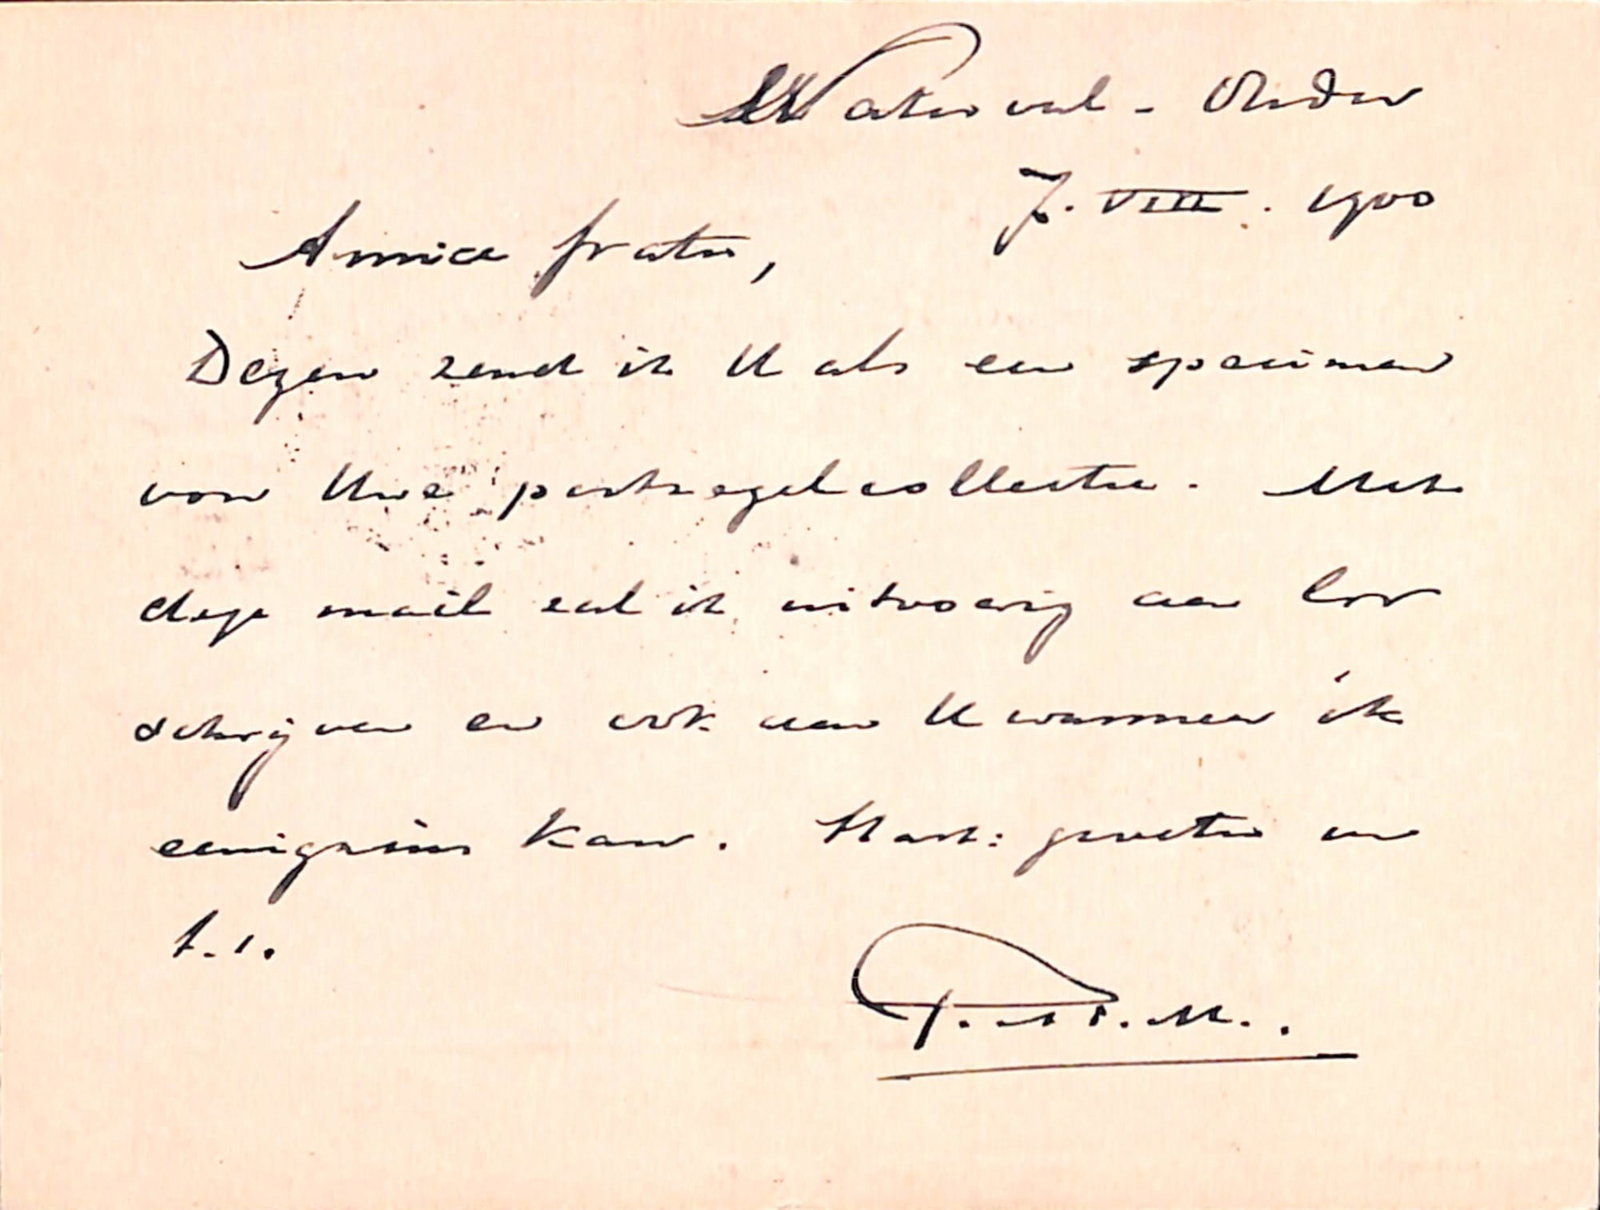 Waterval - Onder
7. VIII. 1900
Amice frater,
Dezen zend ik U als een specimen
voor Uwe postzegelcollectie. Met
deze mail zal ik uitvoerig aan
schrijven en ook aan U wanneer ik
eenigszins kan. Hart: groeten en
t.t.